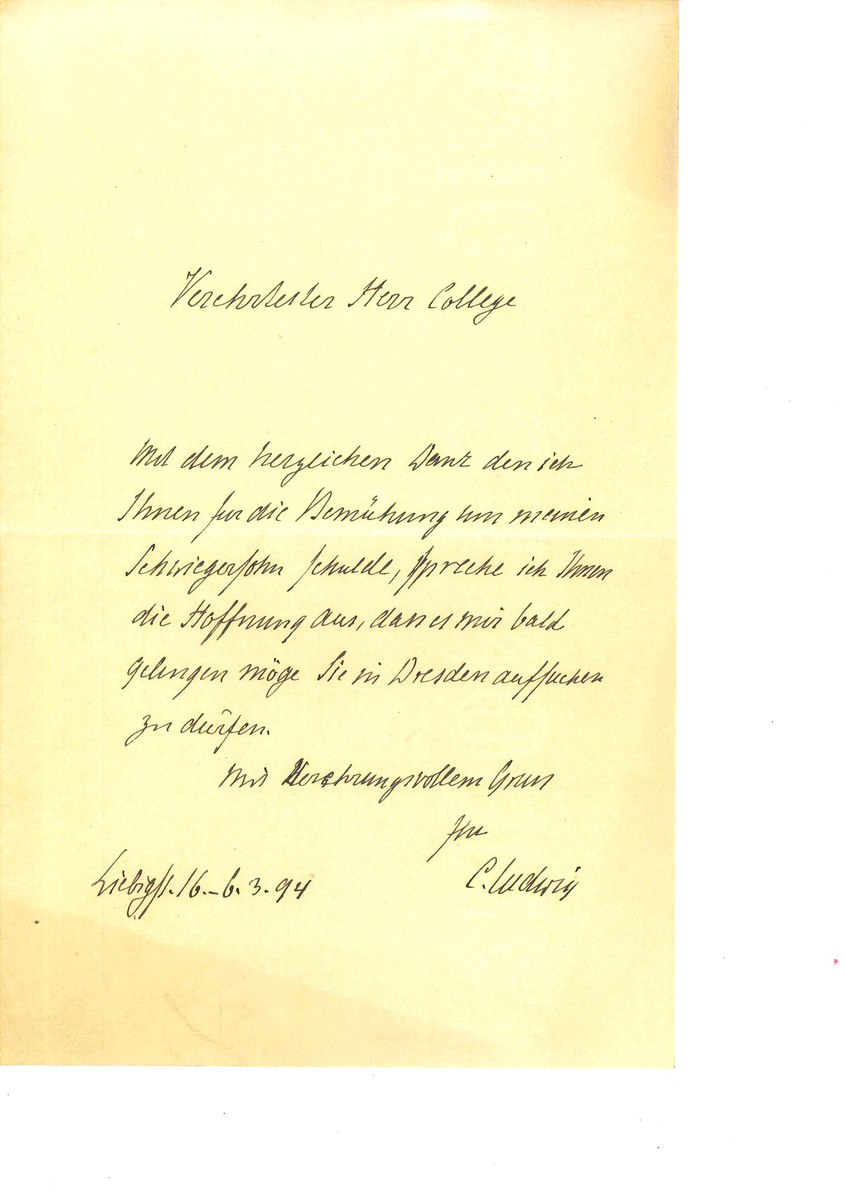 Verehrtester Herr College
Mit dem herzlichen Dank den ich
Ihnen für die Bemühung um meinen
Schwiegersohn schulde, spreche ich Ihnen
die Hoffnung aus, dass es mir bald
gelingen möge Sie in Dresden aufsuchen
zu dürfen.
Mit Verehrungsvollem Gruss
Ihr
C. Ludwig
Liebigst. 16. – 6. 3. 94